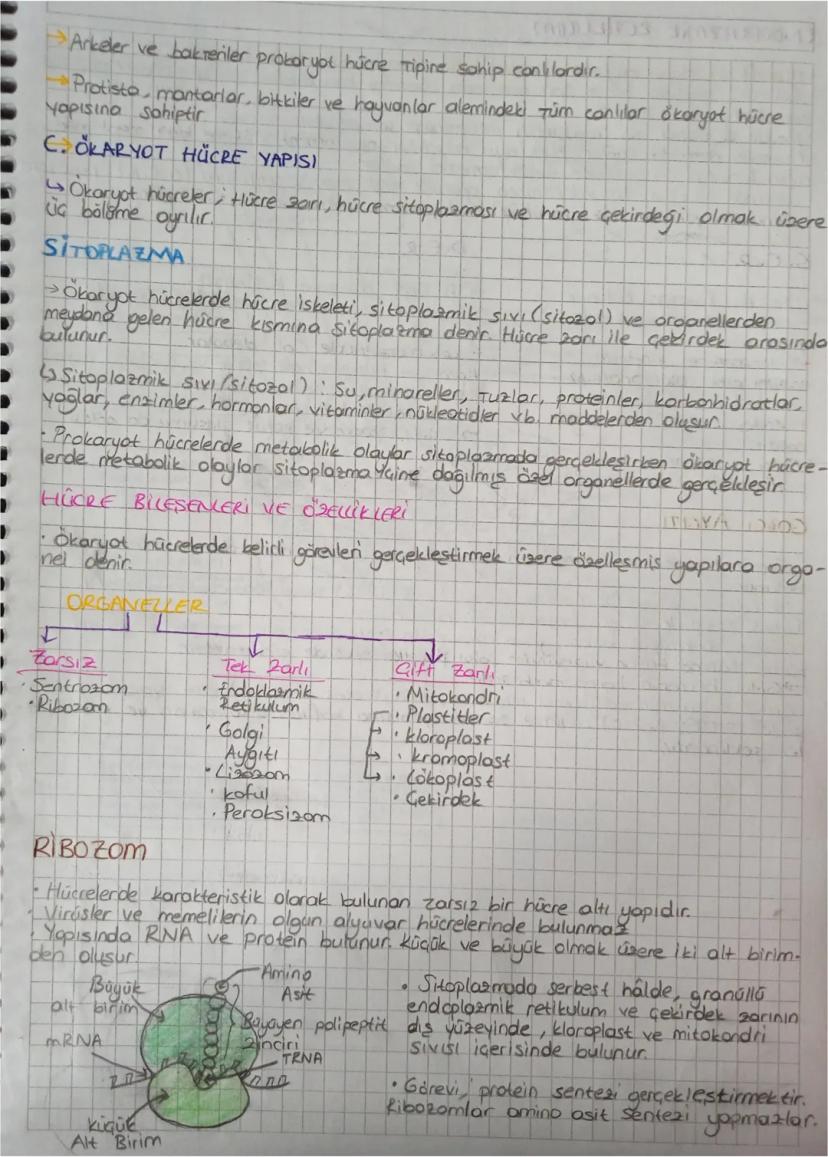 → Arkeler ve bakteriler prokaryot hücre tipine sahip canlılardır.
→ Protista, mantarlar, bitkiler ve hayvanlar alemindeki tüm canlılar ökaryot hücre
yapısına sahiptir
C→ ÖKARYOT HÜCRE YAPISI
↳ Ökaryot hücreler; Hücre zarı, hücre sitoplazması ve hücre çekirdeği olmak üzere
üç bölüme ayrılır.
SİTOPLAZMA
→ Ökaryot hücrelerde hücre iskeleti, sitoplazmik sıvı (sitozol) ve organellerden
meydana gelen hücre kısmına sitoplazma denir. Hücre zarı ile çekirdek arasında
bulunur.
↳ Sitoplazmik sıvı (sitozol) : Su, mineraller, tuzlar, proteinler, karbonhidratlar,
yağlar, enzimler, hormonlar, vitaminler, nükleotidler vb. maddelerden oluşur.
· Prokaryot hücrelerde metabolik olaylar sitoplazmada gerçekleşirken ökaryot hücre-
lerde metabolik olaylar sitoplazma içine dağılmış özel organellerde gerçekleşir
HÜCRE BİLEŞENLERİ VE ÖZELLİKLERİ
· Ökaryot hücrelerde belirli görevleri gerçekleştirmek üzere özelleşmiş yapılara orga-
nel denir.
ORGANELLER
Zarsız
· Sentrozom
· Ribozom
Tek Zarlı
· Endoklazmik
Retikulum
· Golgi
Aygıtı
· Lizozom
· koful
· Peroksizom
Çift Zarlı
· Mitokondri
· Plastitler
· kloroplast
· kromoplast
· Lökoplast
· Çekirdek
RİBOZOM
· Hücrelerde karakteristik olarak bulunan zarsız bir hücre altı yapıdır.
· Virüsler ve memelilerin olgun alyuvar hücrelerinde bulunmaz
· Yapısında RNA ve protein bulunur. küçük ve büyük olmak üzere iki alt birim-
den oluşur
Büyük
alt birim
mRNA
Küçük
Alt Birim
Amino
Asit
Büyüyen polipeptit
zinciri
TRNA
· Sitoplazmada serbest hâlde, granüllü
endoplazmik retikulum ve çekirdek zarının
dış yüzeyinde, kloroplast ve mitokondri
sıvısı içerisinde bulunur.
· Görevi, protein sentezi gerçekleştirmektir.
Ribozomlar amino asit sentezi yapmazlar.